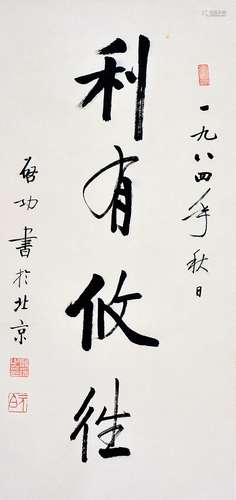 一九八四年秋日
利有攸往
启功书于北京